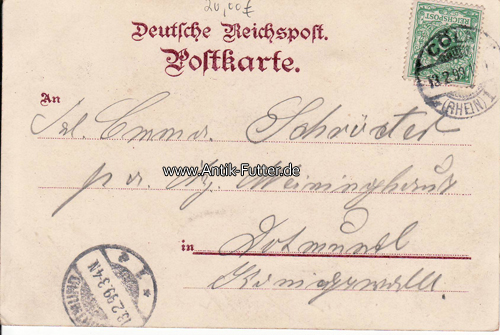 20,00 €
Deutsche Reichspost.
Postkarte.
REICHSPOST
CÖLN
13.2.99
(RHEIN) 1
An
Frl. Emma Schröter
www.Antik-Futter.de
p. a.
in Dortmund
Königswall
13.2.99.3-4N